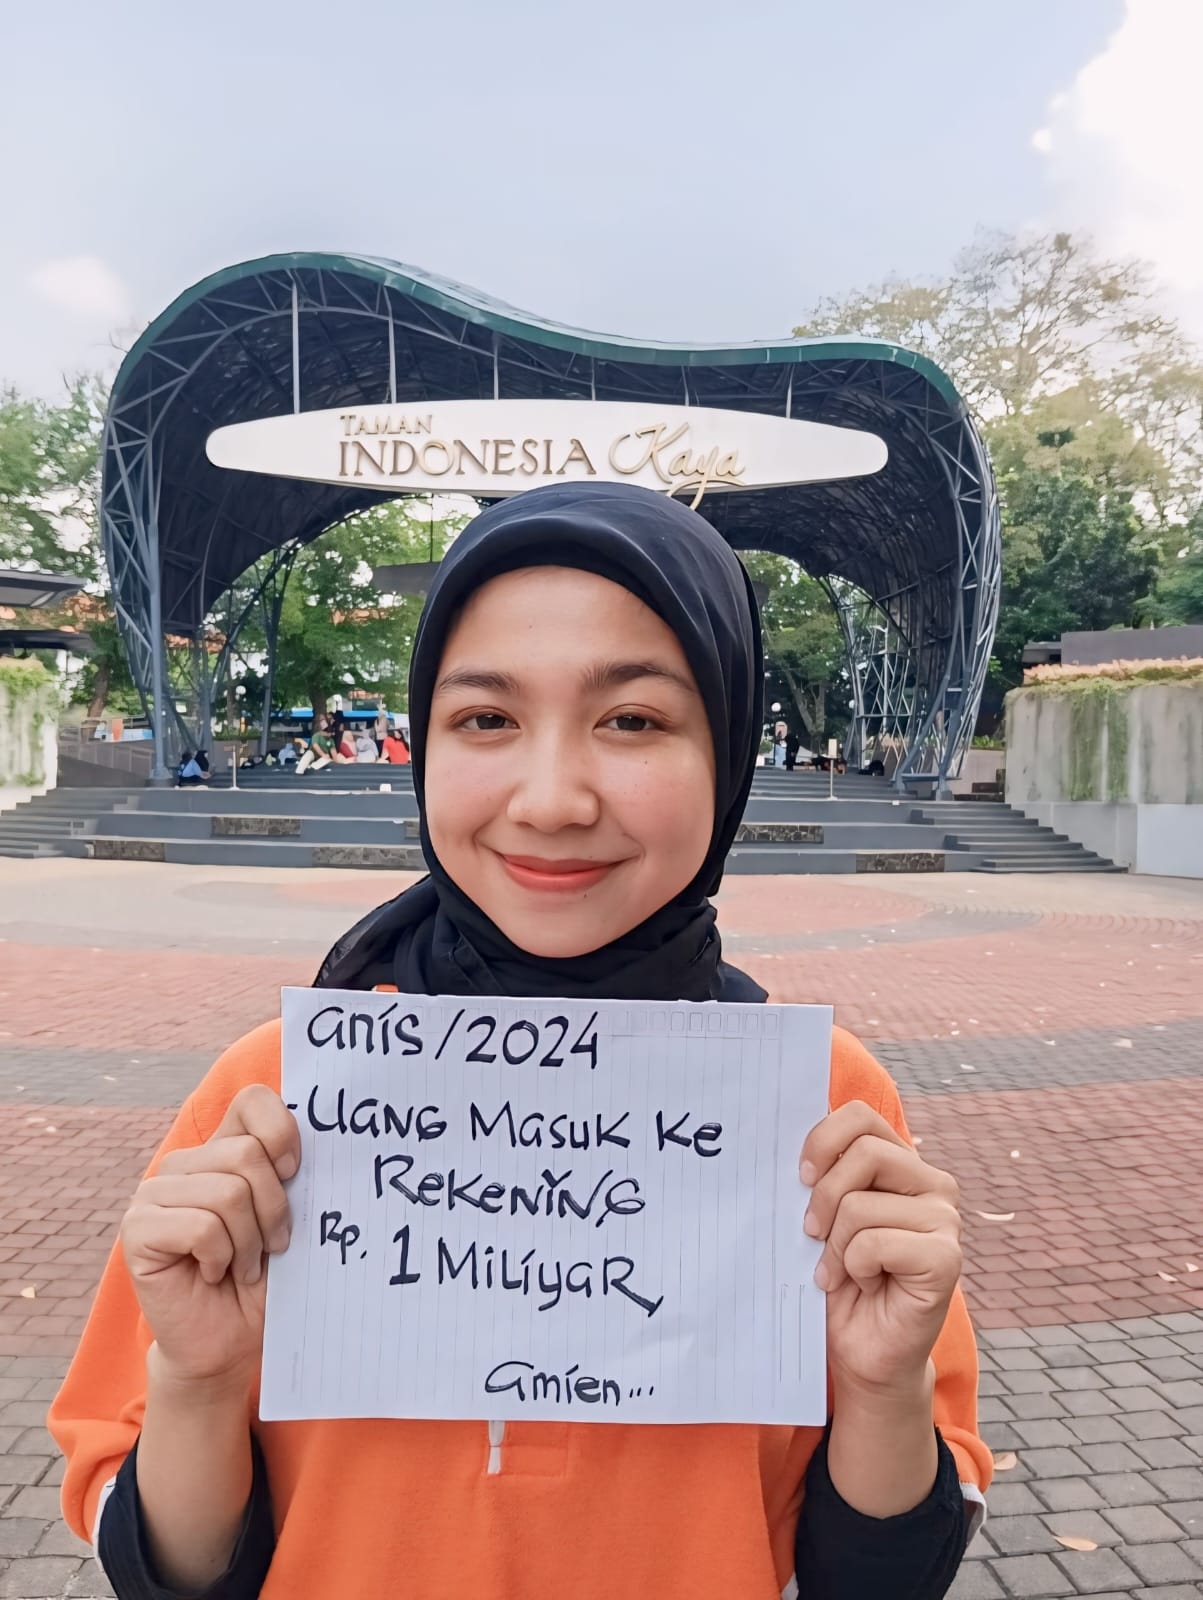 TAMAN
INDONESIA Kaya
anis/2024
-Uang Masuk Ke
Rekening
Rp. 1 Miliyar
amien...